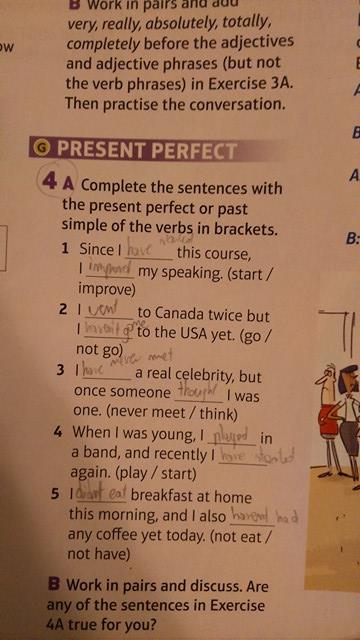 B Work in pairs and add
very, really, absolutely, totally,
completely before the adjectives
and adjective phrases (but not
the verb phrases) in Exercise 3A.
Then practise the conversation.
G PRESENT PERFECT
4 A Complete the sentences with
the present perfect or past
simple of the verbs in brackets.
1 Since I have started this course,
I improved my speaking. (start /
improve)
2 I went to Canada twice but
I haven't gone to the USA yet. (go /
not go)
3 I have never met a real celebrity, but
once someone thought I was
one. (never meet / think)
4 When I was young, I played in
a band, and recently I have started
again. (play / start)
5 I didnt eat breakfast at home
this morning, and I also havent had
any coffee yet today. (not eat /
not have)
B Work in pairs and discuss. Are
any of the sentences in Exercise
4A true for you?
ow
B
A
B: